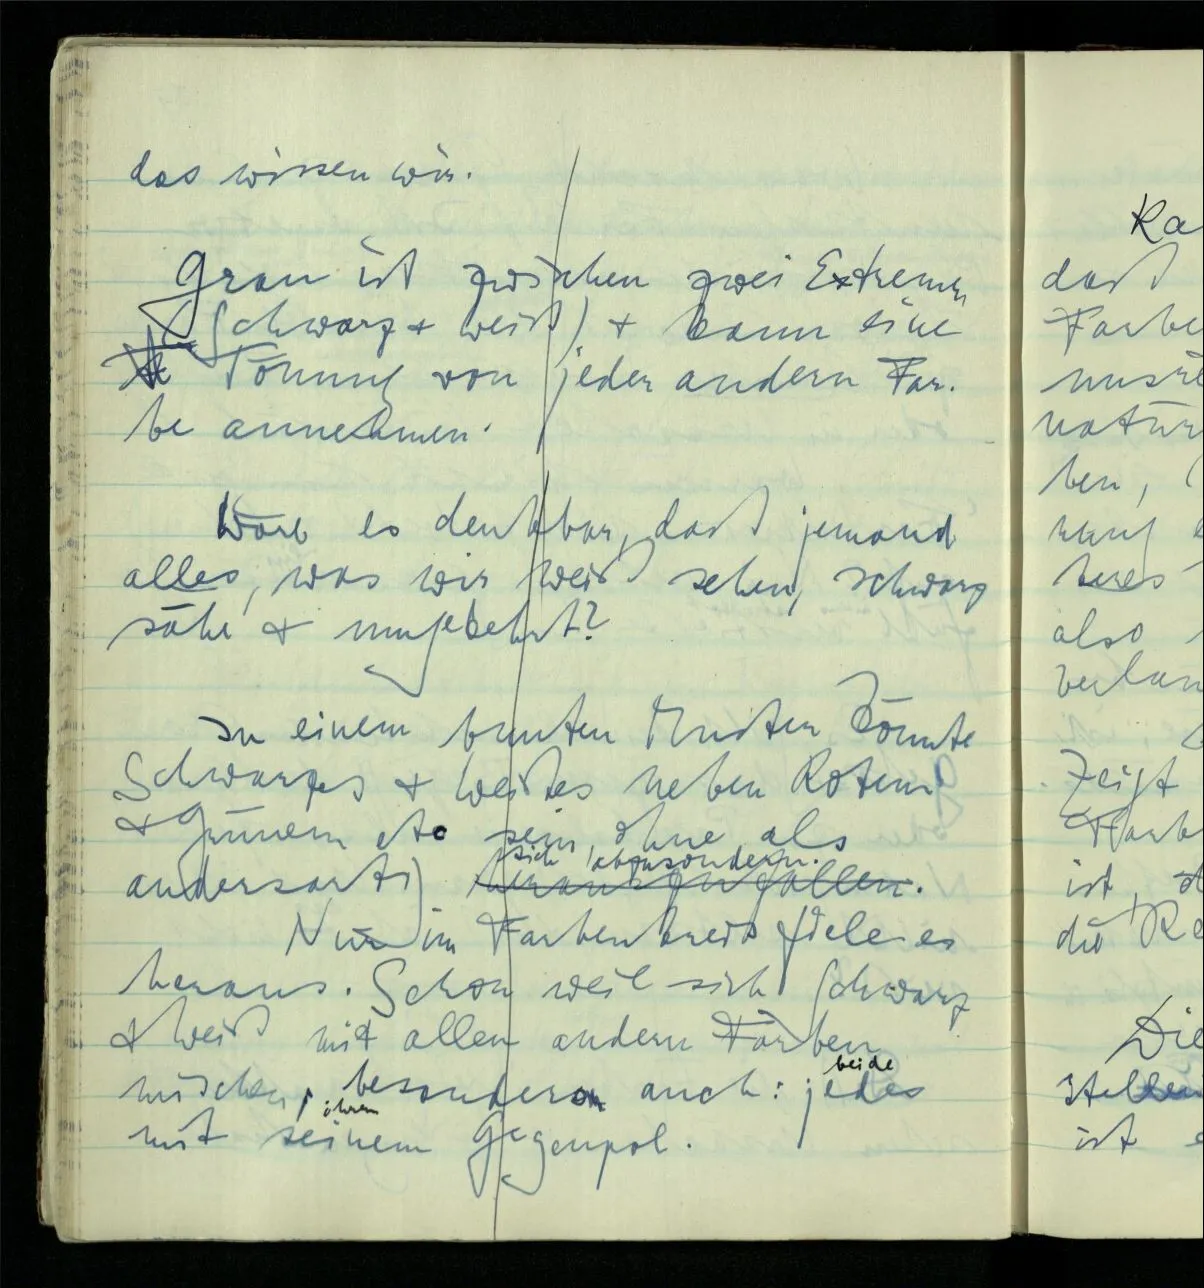 das wissen wir.
Grau ist zwischen zwei Extremen
(Schwarz & weiß) & kann eine
Tönung von jeder andern Far-
be annehmen.
Wäre es denkbar, daß jemand
alles, was wir weiß sehen, schwarz
sähe & umgekehrt?
In einem bunten Muster könnte
Schwarzes & weißes neben Rotem
& Grünem etc sein, ohne als
sich abzusondern.
andersartig herauszufallen.
Nur im Farbenkreis fiele es
heraus. Schon weil sich Schwarz
& Weiß mit allen andern Farben
beide
mischen, besonders auch: jedes
ihren
mit seinem Gegenpol.
Ra
daß
Farbe
natür
ben,
teres
also
verlan
Zeigt
Farb
ist,
die Re
Die
stellen
ist e